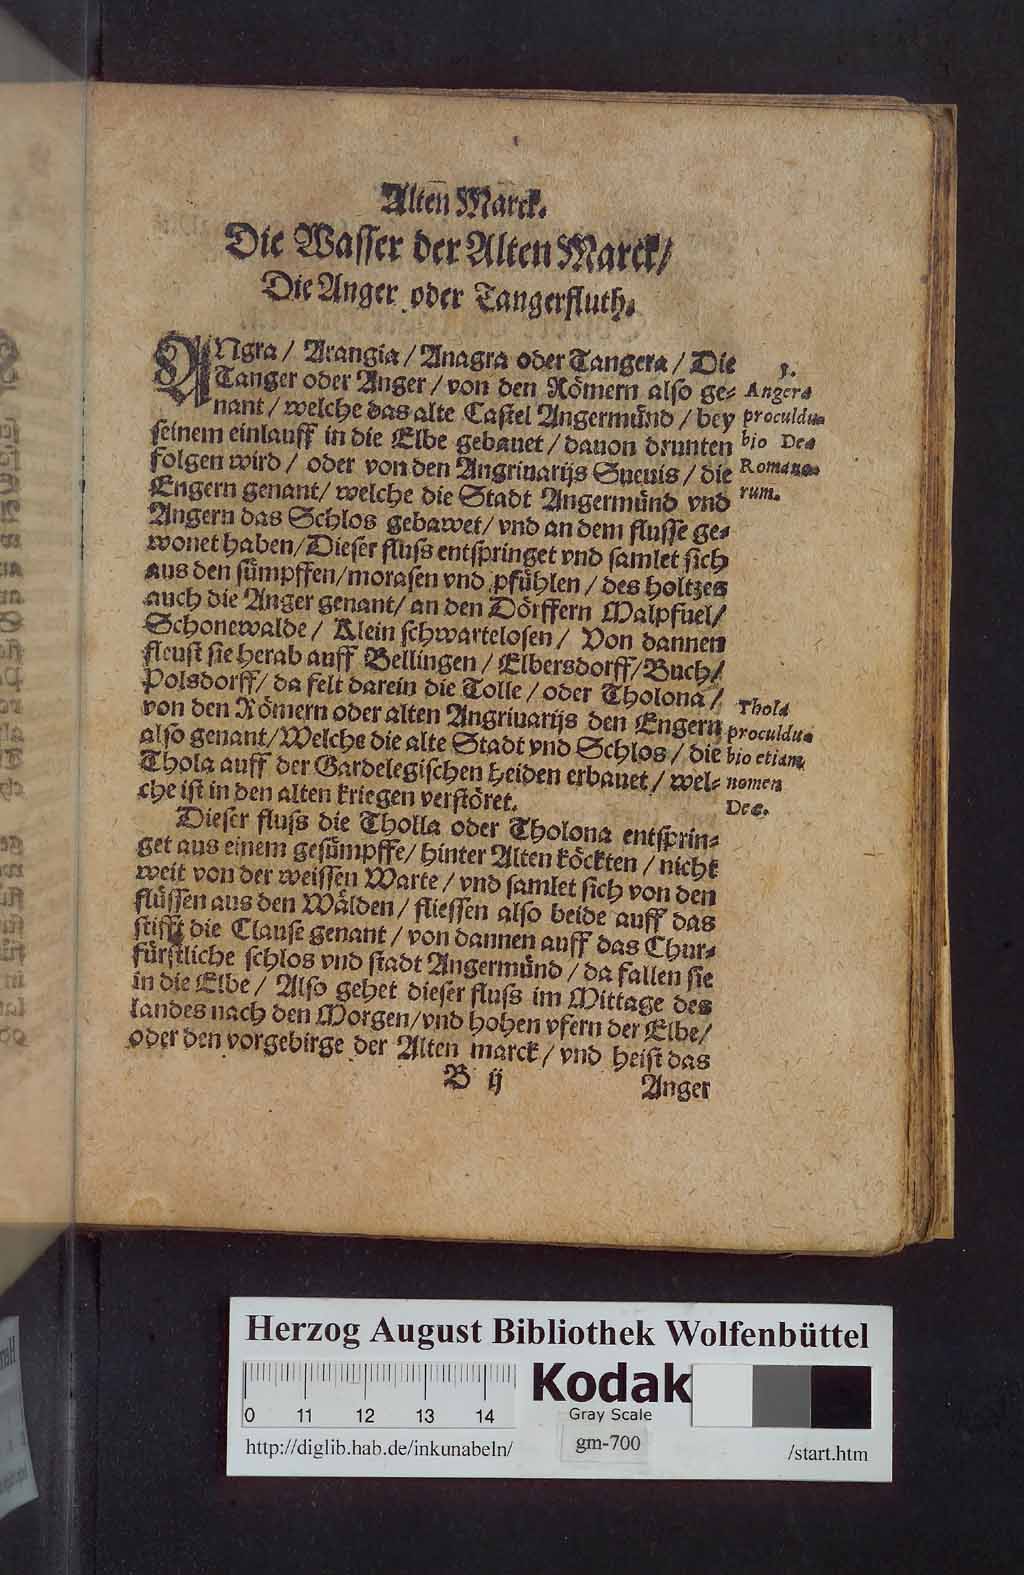 Alten Marck.
Die Wasser der Alten Marck/
Die Anger oder Tangerfluth.
ANgra/ Arangia/ Anagra oder Tangera/ Die
Tanger oder Anger/ von den Römern also ge-
nant/ welche das alte Castel Angermünd/ bey
seinem einlauff in die Elbe gebauet/ dauon drunten
folgen wird/ oder von den Angriuarijs Sueuis/ die
Engern genant/ welche die Stadt Angermünd vnd
Angern das Schlos gebawet/ vnd an dem flusse ge-
wonet haben/ Dieser fluss entspringet vnd samlet sich
aus den sümpffen/ morasen vnd pfühlen/ des holtzes
auch die Anger genant/ an den Dörffern Walpfuel/
Schonewalde/ Klein schwartelosen/ Von dannen
fleust sie herab auff Bellingen/ Elbersdorff/ Buch/
Polsdorff/ da felt darein die Tolle/ oder Tholona/
von den Römern oder alten Angriuarijs den Engern
also genant/ Welche die alte Stadt vnd Schlos/ die
Thola auff der Gardelegischen heiden erbauet/ wel-
che ist in den alten kriegen verstöret.
Dieser fluss die Tholla oder Tholona entsprin-
get aus einem gesümpffe/ hinter Alten köckten/ nicht
weit von der weissen Warte/ vnd samlet sich von den
flüssen aus den Wälden/ fliessen also beide auff das
stifft die Clause genant/ von dannen auff das Chur-
fürstliche schlos vnd stadt Angermünd/ da fallen sie
in die Elbe/ Also gehet dieser fluss im Mittage des
landes nach den Morgen/ vnd hohen vfern der Elbe/
oder den vorgebirge der Alten marck/ vnd heist das
B ij
Anger
Angera
proculdu-
bio Dea
Romano-
rum.
Thola
proculdu-
bio etiam
nomen
Dee.
Herzog August Bibliothek Wolfenbüttel
0 11 12 13 14
Kodak
Gray Scale
gm-700
http://diglib.hab.de/inkunabeln/
/start.htm